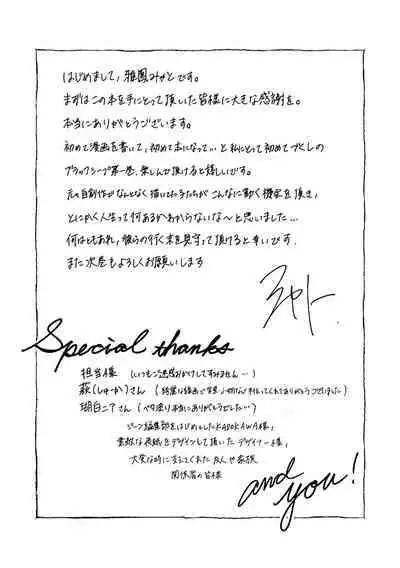 はじめまして、雅鳳みかどです。
まずはこの本を手にとって頂いた皆様に大きな感謝を。
本当にありがとうございます。
初めて漫画を書いて、初めて本になって…と私にとって初めてづくしの
ブラックシープ第一巻、楽しんで頂けると嬉しいです。
元々自創作でなんとなく描いてた子たちがこんなに動く機会を頂き、
とにかく人生って何あるかわからないな〜と思いました…
何はともあれ、彼らの行く末を見守って頂けると幸いです。
また次巻もよろしくお願いします
Special thanks
担当様 (いつもご迷惑おかけしてすみません…)
萩(しゅか)さん (綺麗な 背景 ありがとうございました)
瑚白ニアさん (ベタ塗り本当にありがとうでした…)
ジーン編集部をはじめとしたKADOKAWA様、
素敵な表紙をデザインして頂いたデザイナー様、
大変な時に支えてくれた友人や家族
関係者の皆様
and you!